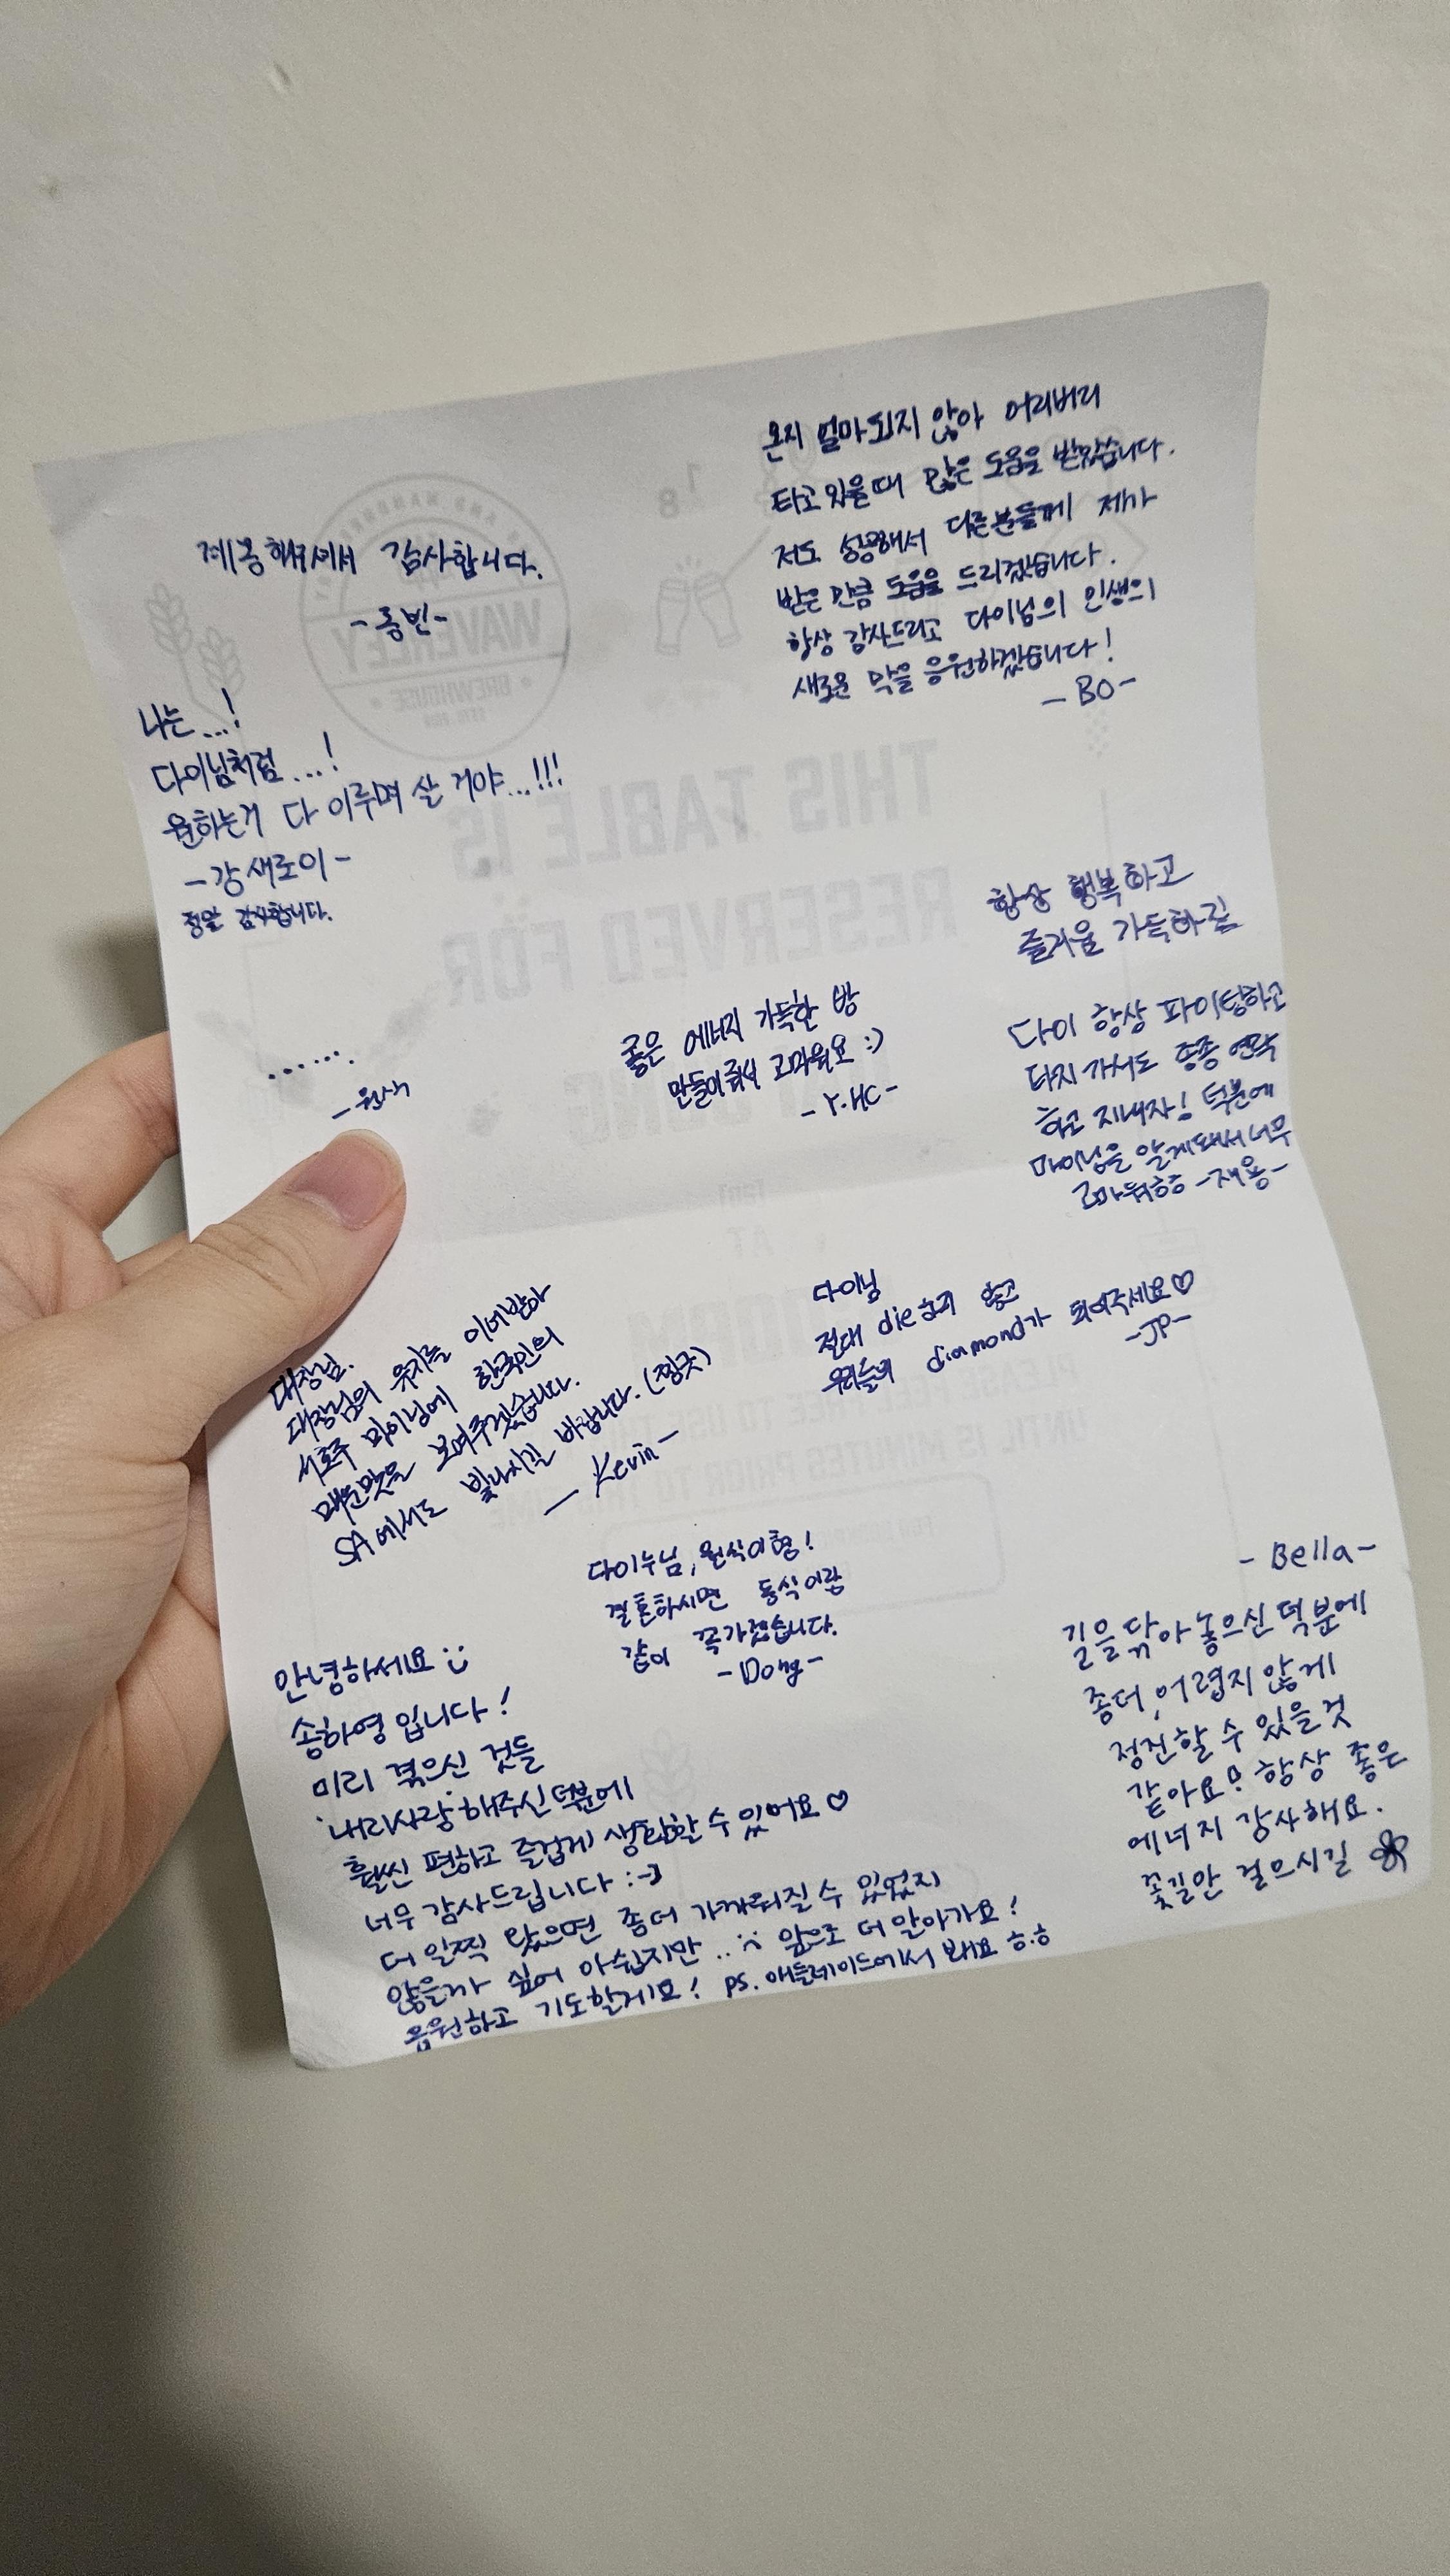 계몽해주셔서 감사합니다.
-종빈-
온지 얼마되지 않아 어리버리
타고 있을때 많은 도움을 받았습니다.
저도 성공해서 다른분들께 제가
받은 만큼 도움을 드리겠습니다.
항상 감사드리고 다이님의 인생의
새로운 막을 응원하겠습니다!
-BO-
나는...!
다이님처럼...!
원하는거 다 이루며 살 거야...!!!
-강새로이-
정말 감사합니다.
......
좋은 에너지 가득한 방
만들어줘서 고마워요 :)
-Y.HC-
항상 행복하고
즐거움 가득하길
다이 항상 파이팅하고
타지 가서도 종종 연락
하고 지내자! 덕분에
마이닝을 알게돼서 너무
고마워ㅎㅎ -재용-
대장님.
대장님의 유지를 이어받아
서호주 마이닝에 한국인의
매운맛을 보여주겠습니다.
SA에서도 빛나시길 바랍니다. (찡긋)
- Kevin -
다이님
절대 die하지 않고
우리들의 diamond가 되어주세요♡
-JP-
다이누님, 원식이형!
결혼하시면 동식이랑
같이 꼭가겠습니다.
-Dong-
안녕하세요 :)
송하영입니다!
미리 겪으신 것들
'내리사랑' 해주신 덕분에
훨씬 편하고 즐겁게 생활할 수 있어요♡
너무 감사드립니다 :-)
더 일찍 왔으면 좀더 가까워질 수 있었지
않을까 싶어 아쉽지만..:( 앞으로 더 알아가요!
응원하고 기도할게요! ps. 애들레이드에서 봬요 ㅎ.ㅎ
-Bella-
길을 닦아 놓으신 덕분에
좀더, 어렵지 않게
정진할 수 있을것
같아요! 항상 좋은
에너지 감사해요.
꽃길만 걸으시길
WAVERLEY
BREWHOUSE
THIS TABLE IS
RESERVED FOR
AT
PLEASE FEEL FREE
UNTIL 15 MINUTES PRIOR TO THIS TIME